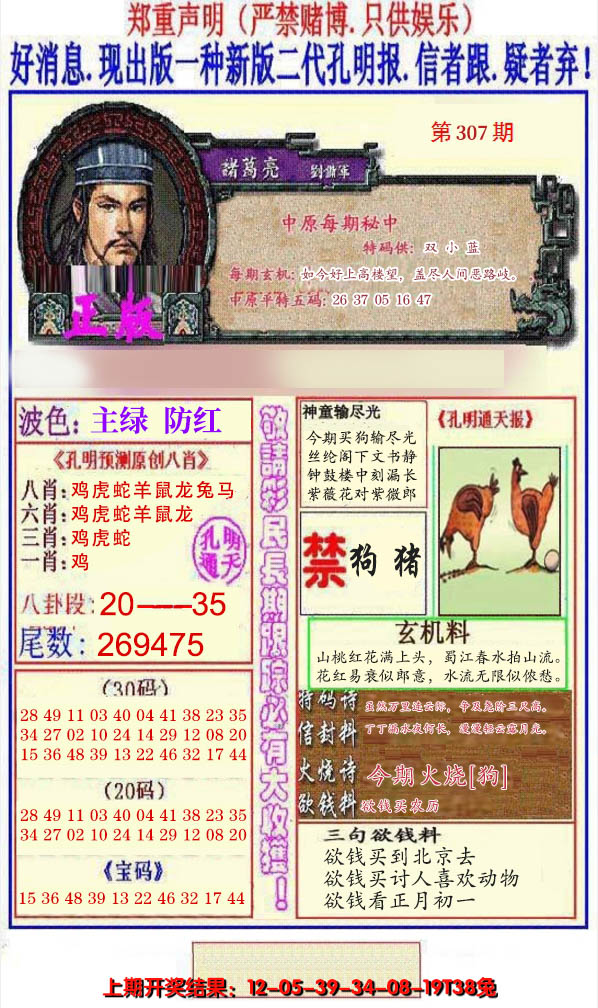 郑重声明（严禁赌博.只供娱乐）
好消息.现出版一种新版二代孔明报.信者跟.疑者弃！
第307期
諸葛亮 劉備軍
中原每期秘中
特码供：双 小 蓝
每期玄机：如今好上高楼望，盖尽人间恶路岐。
中原平特五码：26 37 05 16 47
正版
波色：主绿 防红
《孔明预测原创八肖》
八肖：鸡虎蛇羊鼠龙兔马
六肖：鸡虎蛇羊鼠龙
三肖：鸡虎蛇
一肖：鸡
孔明
通天
八卦段：20——35
尾数：269475
（30码）
28 49 11 03 40 04 41 38 23 35
34 27 02 10 24 14 29 12 08 20
15 36 48 39 13 22 46 32 17 44
（20码）
28 49 11 03 40 04 41 38 23 35
34 27 02 10 24 14 29 12 08 20
《宝码》
15 36 48 39 13 22 46 32 17 44
敬請彩民長期跟踪必有大收獲！
神童输尽光
今期买狗输尽光
丝纶阁下文书静
钟鼓楼中刻漏长
紫薇花对紫微郎
《孔明通天报》
禁 狗 猪
玄机料
山桃红花满上头，蜀江春水拍山流。
花红易衰似郎意，水流无限似侬愁。
特码诗
信封料
虽然万里连云际，争及尧阶三尺高。
丁丁漏水夜何长，漫漫轻云露月光。
火烧诗 今期火烧[狗]
欲钱料 欲钱买农历
三句欲钱料
欲钱买到北京去
欲钱买讨人喜欢动物
欲钱看正月初一
上期开奖结果：12-05-39-34-08-19T38兔